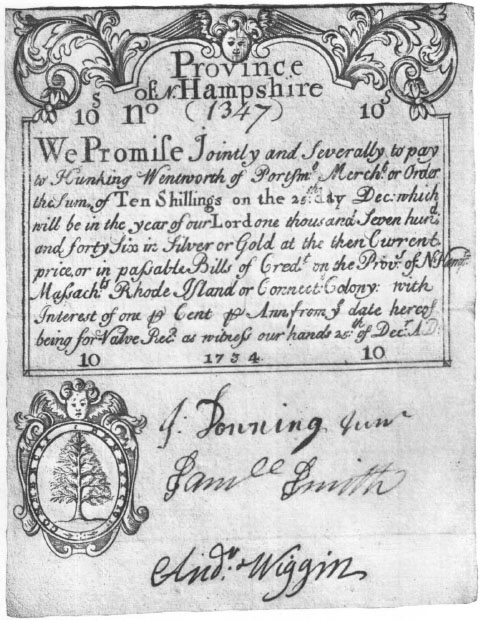 Province
of N Hampshire
10s No (1347) 10s
We Promise Jointly and Severally to pay
to Hunking Wentworth of Portsmo Mercht or Order
the Sum of Ten Shillings on the 25th day Decr: which
will be in the year of our Lord one thousand Seven hund
and forty Six in Silver or Gold at the then Current
price, or in passable Bills of Credt on the Provce of N Hampr
Massachts Rhode Island or Connectt Colony: with
Interest of one p Cent p Ann from ye date hereof
being for Value Recd as witness our hands 25th of Decr AD:
10 1734. 10
J: Downing Junr
Samll Smith
Andw Wiggin